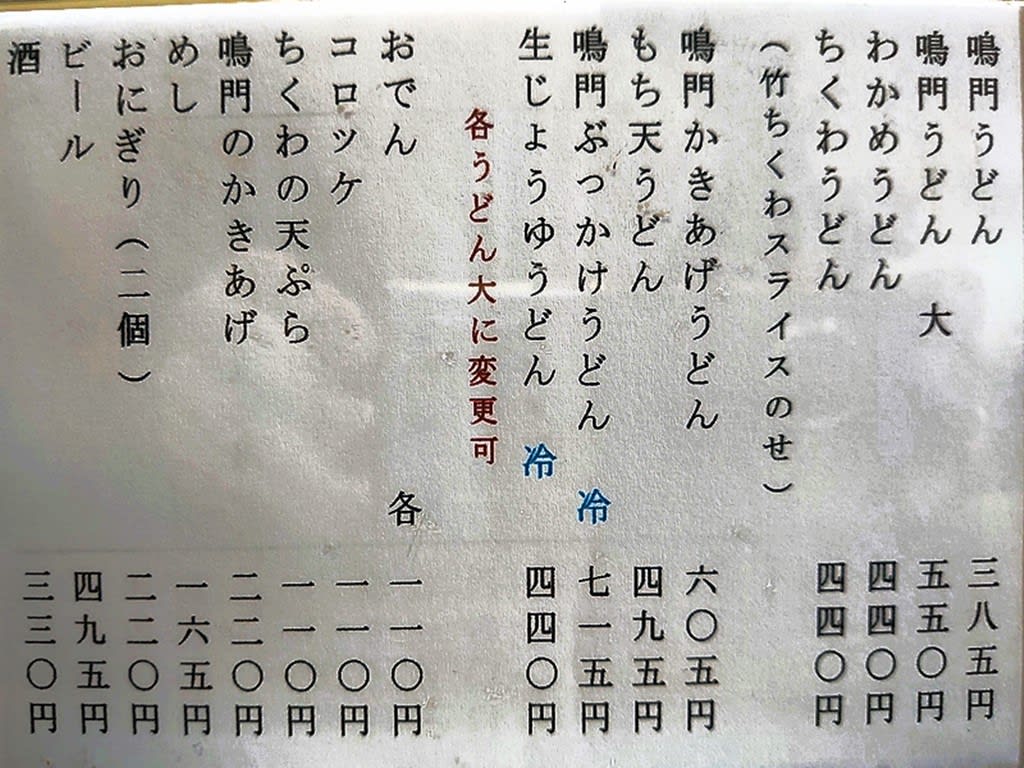 鳴門うどん 三八五円
鳴門うどん 大 五五〇円
わかめうどん 四四〇円
ちくわうどん 四四〇円
（竹ちくわスライスのせ）
鳴門かきあげうどん 六〇五円
もち天うどん 四九五円
鳴門ぶっかけうどん 冷 七一五円
生じょうゆうどん 冷 四四〇円
各うどん大に変更可
おでん 各 一一〇円
コロッケ 一一〇円
ちくわの天ぷら 一一〇円
鳴門のかきあげ 二二〇円
めし 一六五円
おにぎり（二個） 二二〇円
ビール 四九五円
酒 三三〇円